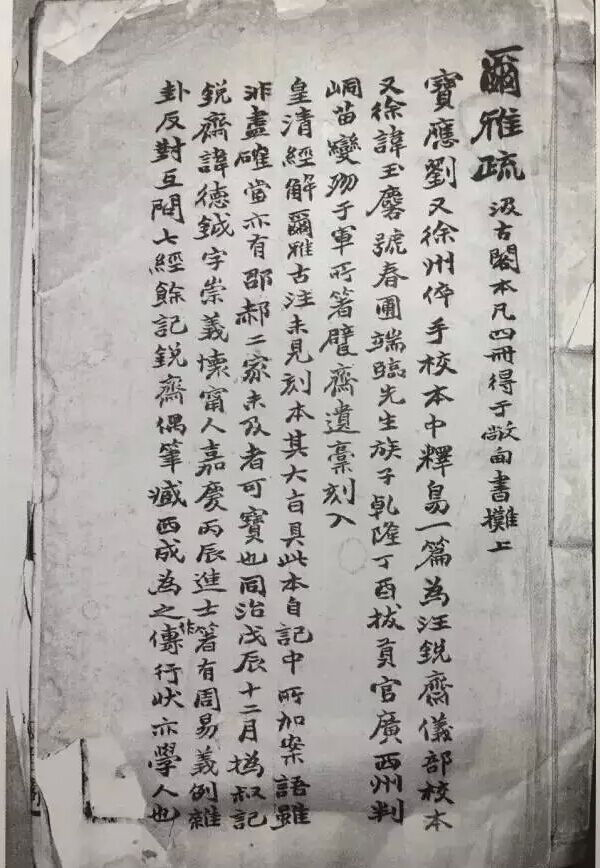 爾雅疏 汲古閣本凡四冊得于敞甸書攤上
寶應劉又徐州倅手校本中釋鳥一篇為汪銳齋儀部校本
又徐諱玉麐號春圃端臨先生族子乾隆丁酉拔貢官廣西州判
峒苗變歿于軍所箸甓齋遺稾刻入
皇清經解爾雅古注未見刻本其大旨具此本自記中所加案語雖
非盡確當亦有邵郝二家未及者可寶也同治戊辰十二月撝叔記
銳齋諱德鉞字崇義懷甯人嘉慶丙辰進士箸有周易義例雜
卦反對互七經餘記銳齋偶筆臧西成為之作傳行狀亦學人也